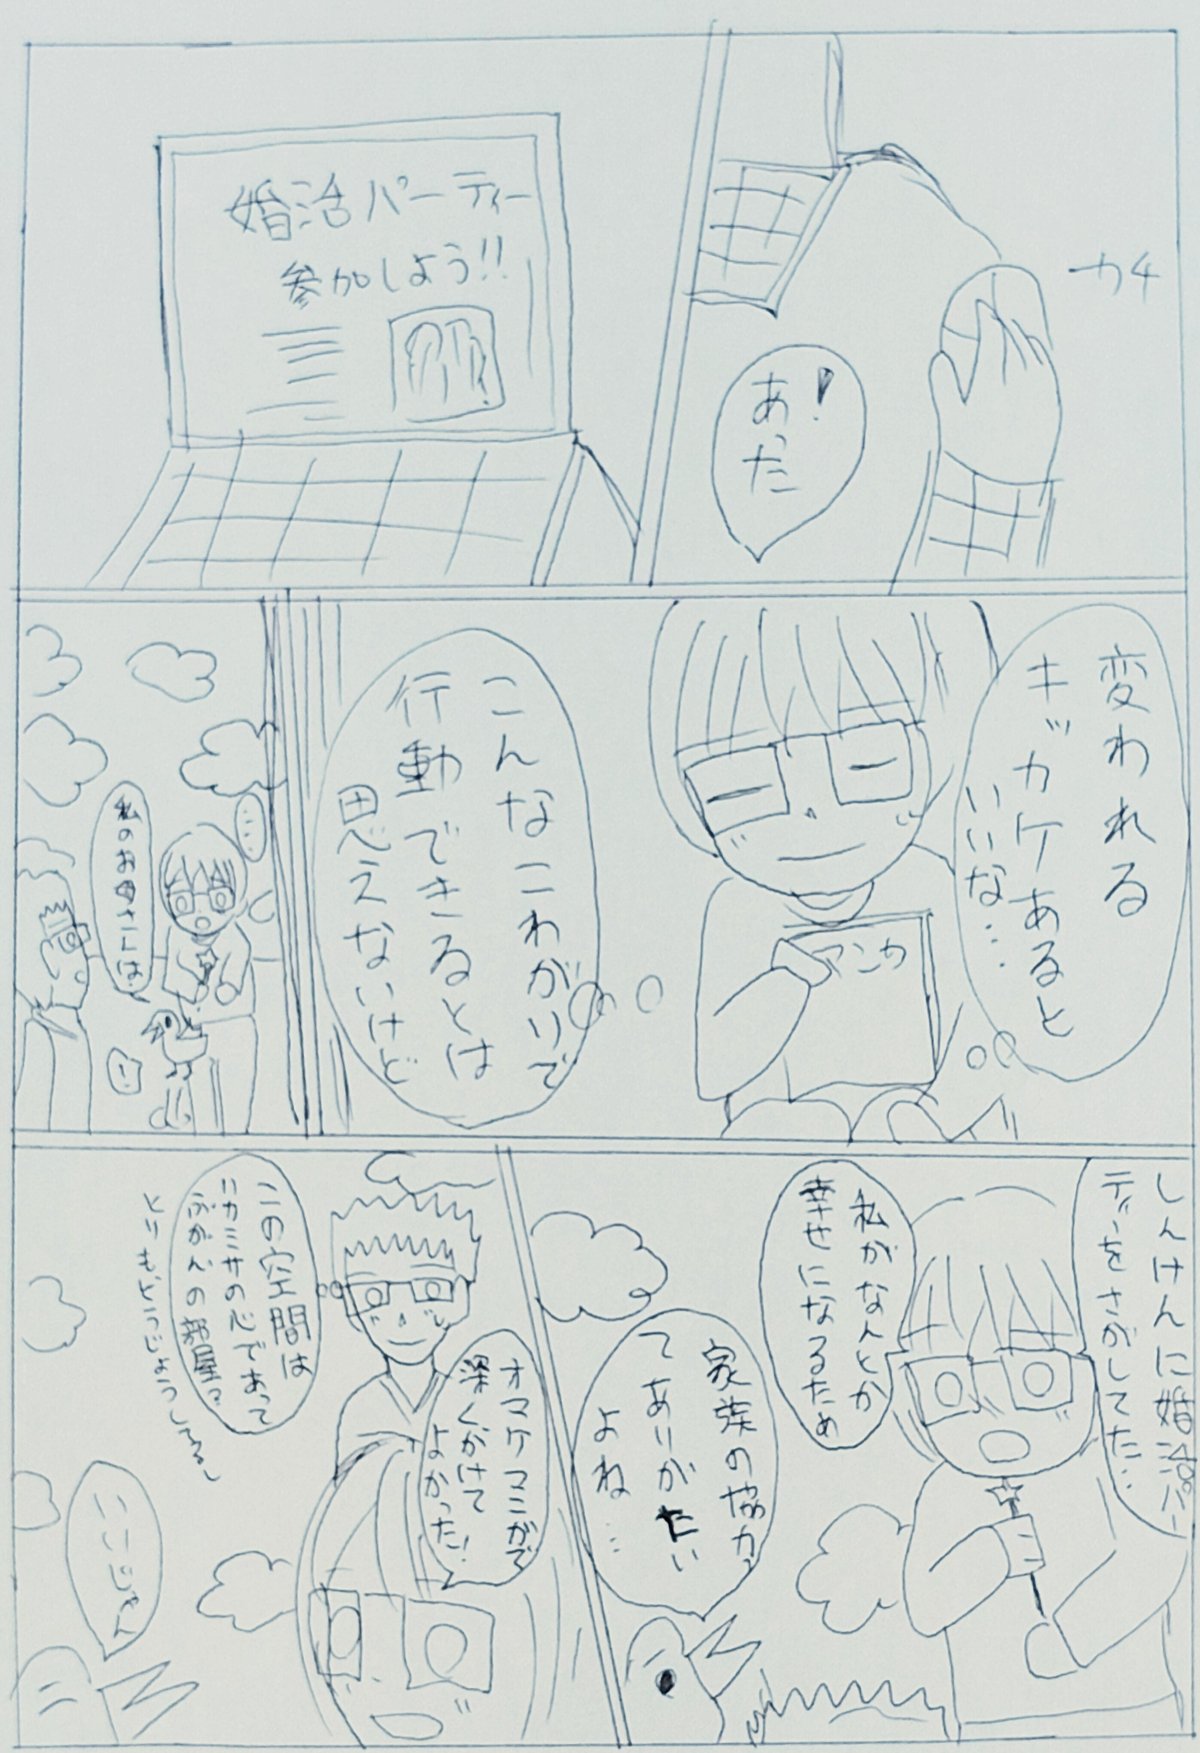 カチ
あった!
婚活パーティー
参加しよう!!
変われる
キッカケあると
いいな…
マンガ
こんなこわがりで
行動できるとは
思えないけど
…
私のお母さんは
しんけんに婚活パー
ティーをさがしてた…
私がなんとか
幸せになるため
家族の協力っ
てありがたい
よね…
オマケマンガで
深くかけて
よかった!
この空間は
ハカミサの心であって
ぶかんの部屋で
とりもどうじょうしてる
いいじゃん